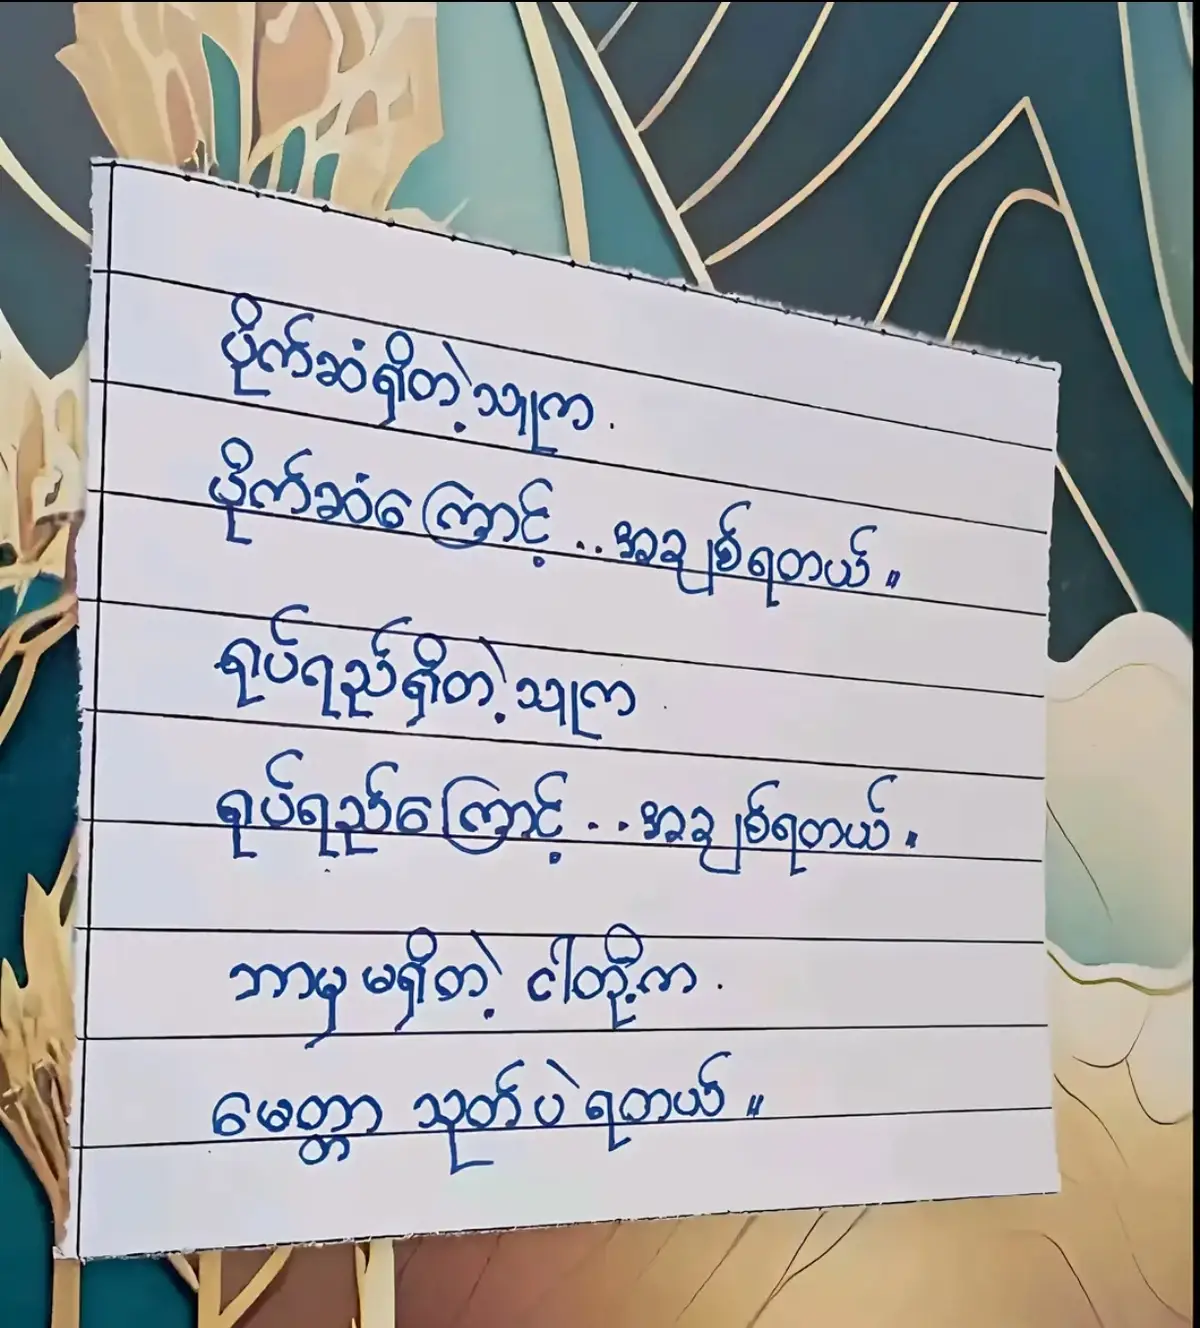 ပိုက်ဆံရှိတဲ့သူက .
ပိုက်ဆံကြောင့် ..အချစ်ရတယ်။
ရုပ်ရည်ရှိတဲ့သူက .
ရုပ်ရည်ကြောင့် ..အချစ်ရတယ်။
ဘာမှ မရှိတဲ့ ငါတို့က .
မေတ္တာ သုတ်ပဲ ရတယ်။